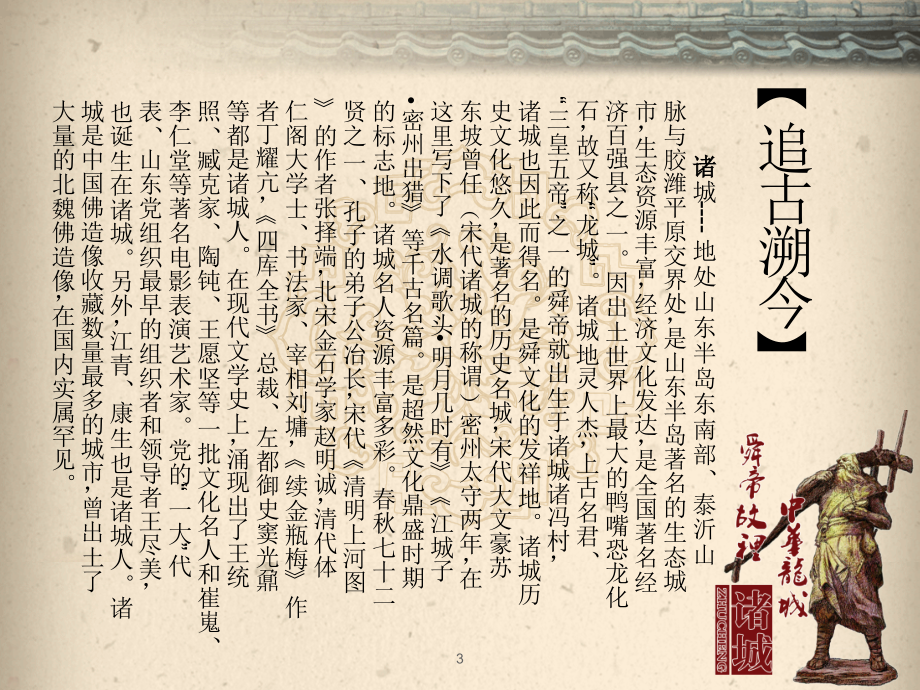 【追古溯今】
诸城---地处山东半岛东南部、泰沂山
脉与胶潍平原交界处,是山东半岛著名的生态城
市,生态资源丰富,经济文化发达,是全国著名经
济百强县之一。因出土世界上最大的鸭嘴恐龙化
石,故又称“龙城”。诸城地灵人杰,上古名君、
“三皇五帝”之一的舜帝就出生于诸城诸冯村,
诸城也因此而得名。是舜文化的发祥地。诸城历
史文化悠久,是著名的历史名城,宋代大文豪苏
东坡曾任(宋代诸城的称谓)密州太守两年,在
这里写下了《水调歌头•明月几时有》《江城子
•密州出猎》等千古名篇。是超然文化鼎盛时期
的标志地。诸城名人资源丰富多彩。春秋七十二
贤之一、孔子的弟子公治长,宋代《清明上河图
》的作者张择端,北宋金石学家赵明诚,清代体
仁阁大学士、书法家、宰相刘墉,《续金瓶梅》作
者丁耀亢,《四库全书》总裁、左都御史窦光鼐
等都是诸城人。在现代文学史上,涌现出了王统
照、臧克家、陶钝、王愿坚等一批文化名人和崔嵬、
李仁堂等著名电影表演艺术家。党的“一大”代
表、山东党组织最早的组织者和领导者王尽美,
也诞生在诸城。另外,江青、康生也是诸城人。诸
城是中国佛造像收藏数量最多的城市,曾出土了
大量的北魏佛造像,在国内实属罕见。
中华龍城
舜帝故裡
诸城
ZHUCHENG
3